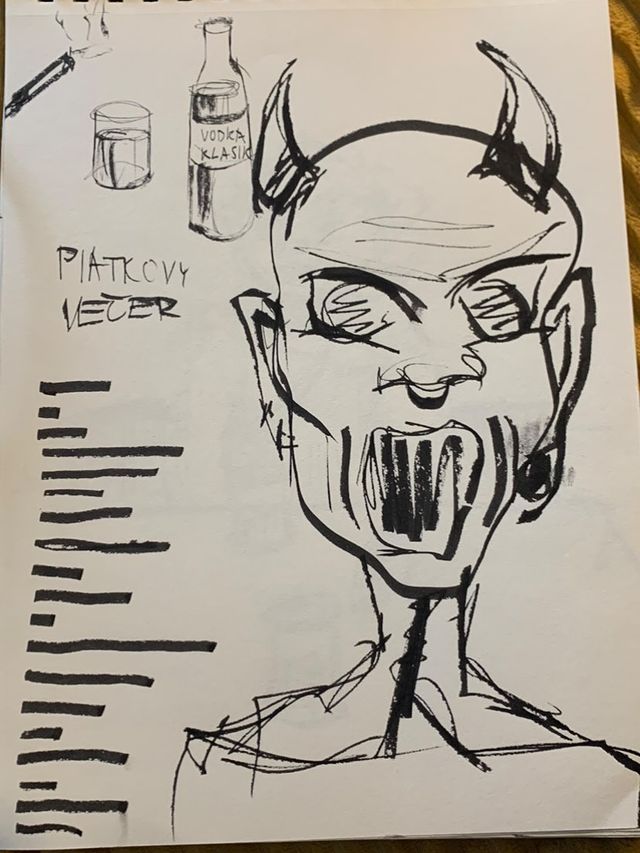 VODKA
KLASIK
PIATKOVY
VEČER